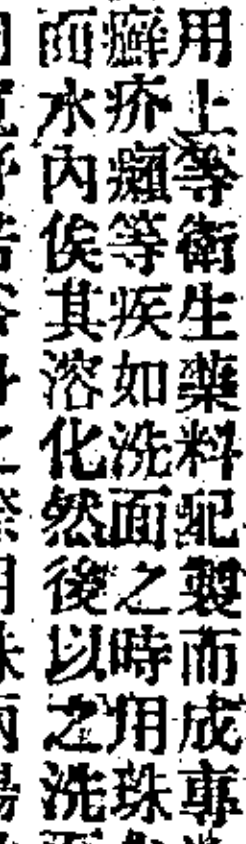 用上等衛生藥料配製而成專
癬疥癩等疾如洗面之時用珠
面水內俟其溶化然後以之洗